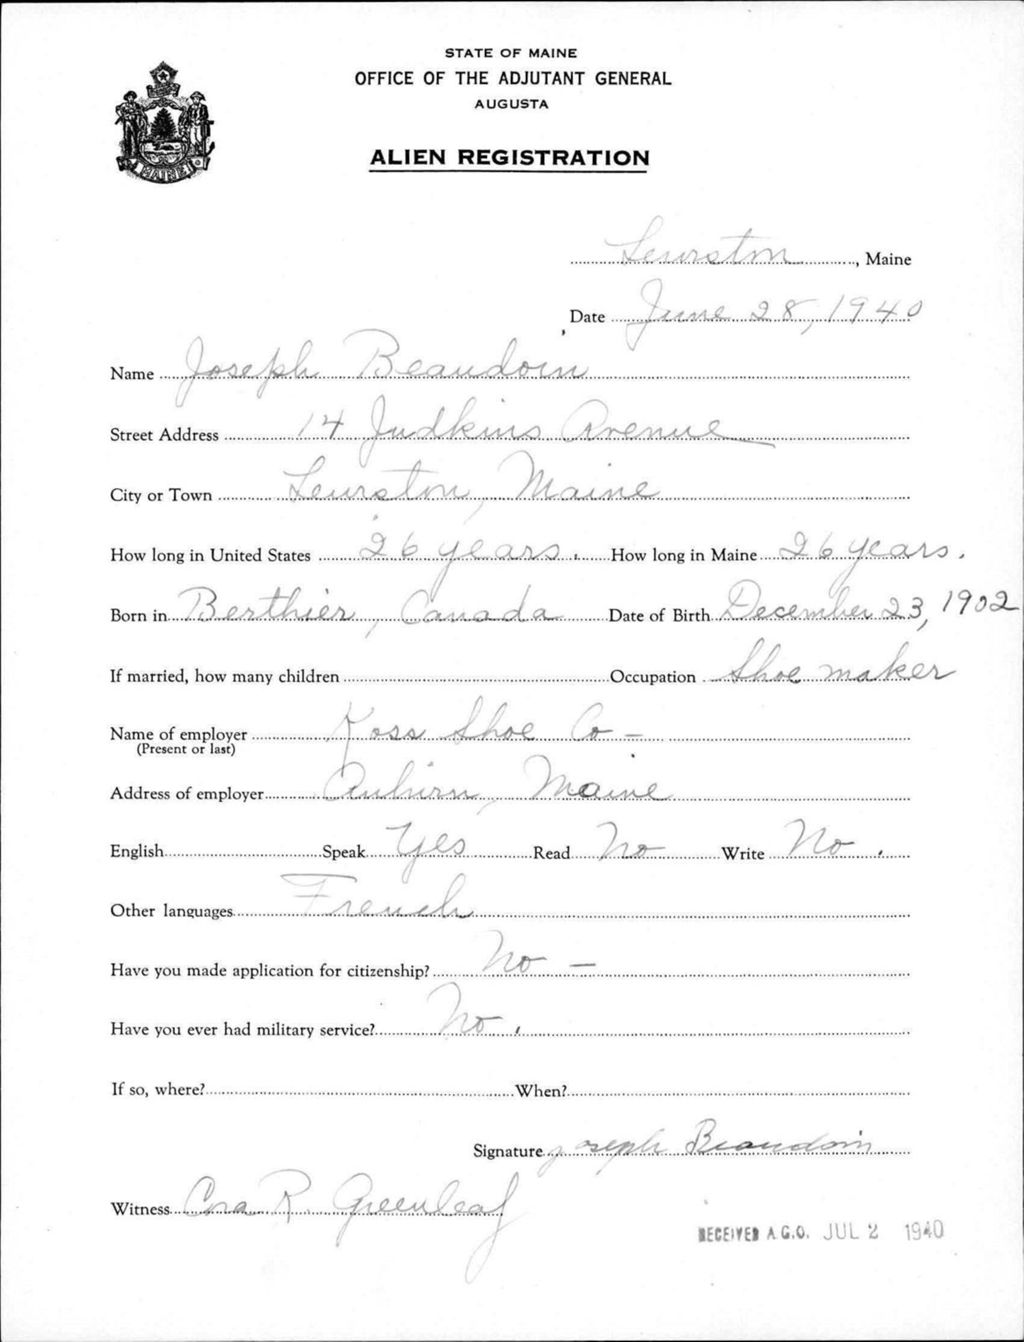 STATE OF MAINE
OFFICE OF THE ADJUTANT GENERAL
AUGUSTA
ALIEN REGISTRATION
MAINE
Lewiston, Maine
Date June 28, 1940
Name Joseph Beaudoin
Street Address 14 Judkins Avenue
City or Town Lewiston, Maine
How long in United States 26 years. How long in Maine 26 years.
Born in Berthier, Canada Date of Birth December 23, 1902
If married, how many children Occupation Shoe maker
Name of employer Koss Shoe Co -
(Present or last)
Address of employer Auburn, Maine
English Speak Yes Read No Write No.
Other languages French
Have you made application for citizenship? No -
Have you ever had military service? No.
If so, where? When?
Signature Joseph Beaudoin
Witness Cora R. Greenleaf
RECEIVED A.G.O. JUL 2 1940